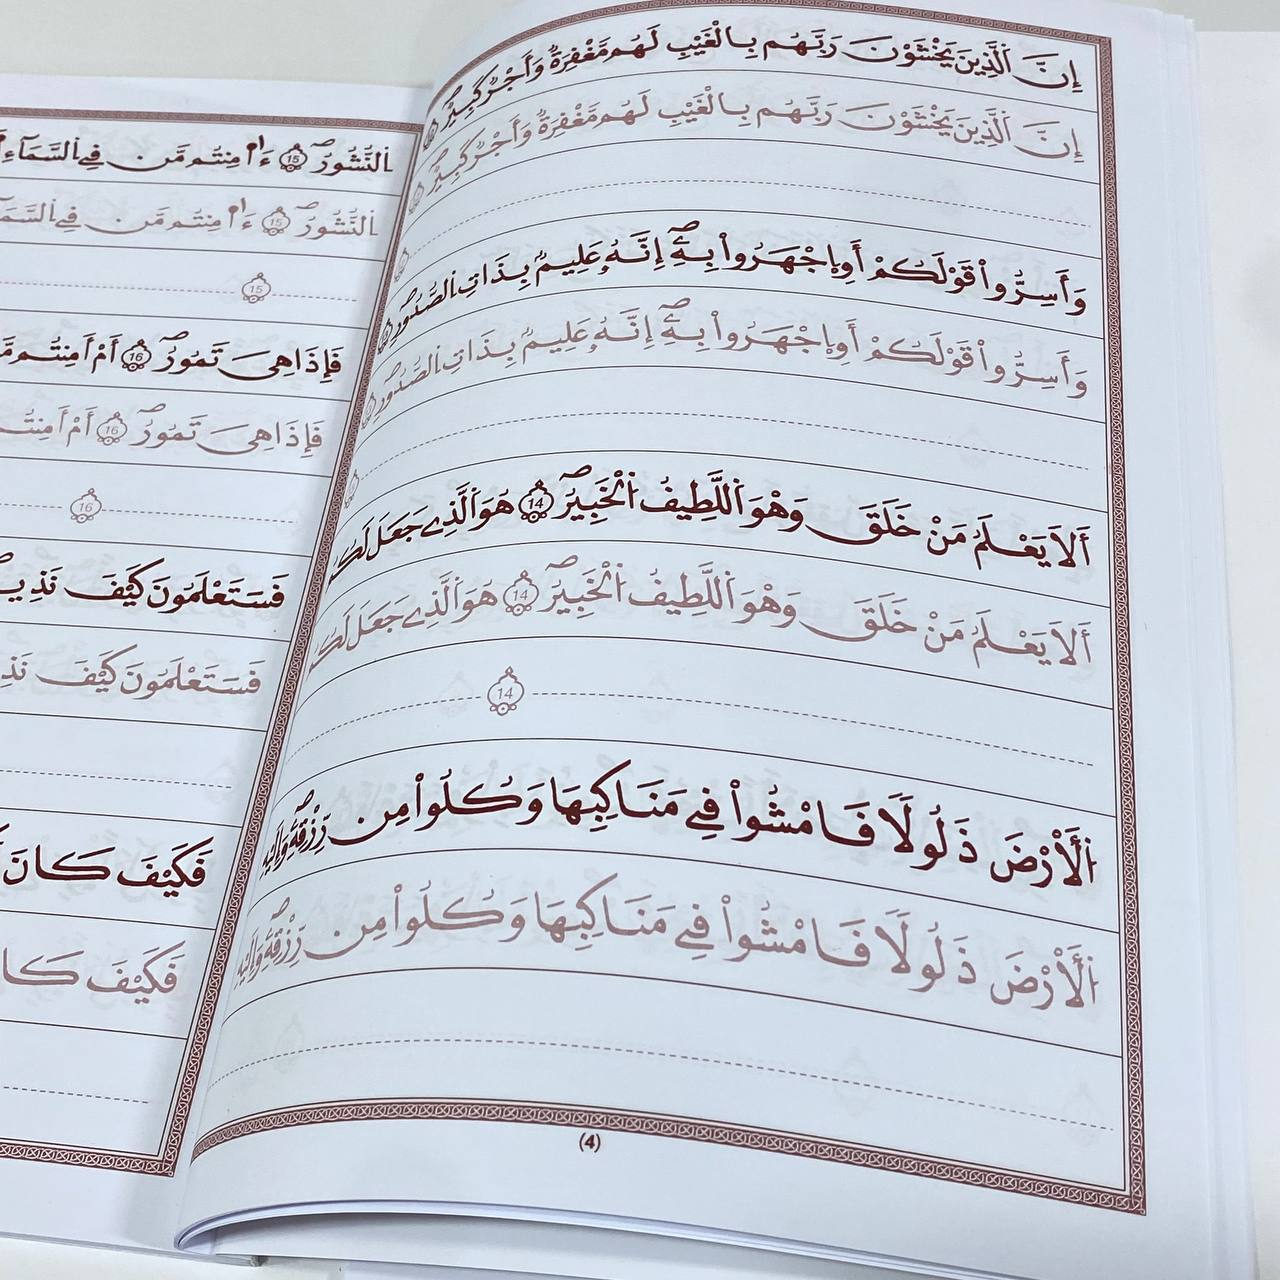 إِنَّ ٱلَّذِينَ يَخْشَوْنَ رَبَّهُم بِالْغَيْبِ لَهُم مَّغْفِرَةٌ وَأَجْرٌ كَبِيرٌ
إِنَّ ٱلَّذِينَ يَخْشَوْنَ رَبَّهُم بِالْغَيْبِ لَهُم مَّغْفِرَةٌ وَأَجْرٌ كَبِيرٌ
وَأَسِرُّواْ قَوْلَكُمْ أَوِ اِجْهَرُواْ بِهِۦٓ إِنَّهُۥ عَلِيمٌۢ بِذَاتِ اِ۬لصُّدُورِ
وَأَسِرُّواْ قَوْلَكُمْ أَوِ اِجْهَرُواْ بِهِۦٓ إِنَّهُۥ عَلِيمٌۢ بِذَاتِ اِ۬لصُّدُورِ
أَلَا يَعْلَمُ مَنْ خَلَقَ وَهْوَ اَ۬للَّطِيفُ اُ۬لْخَبِيرُ 14 هُوَ اَ۬لَّذِے جَعَلَ لَكُمُ
أَلَا يَعْلَمُ مَنْ خَلَقَ وَهْوَ اَ۬للَّطِيفُ اُ۬لْخَبِيرُ 14 هُوَ اَ۬لَّذِے جَعَلَ لَكُمُ
14
اُ۬لَارْضَ ذَلُولاٗ فَامْشُواْ فِے مَنَاكِبِهَا وَكُلُواْ مِن رِّزْقِهِۦ وَإِلَيْهِ
اُ۬لَارْضَ ذَلُولاٗ فَامْشُواْ فِے مَنَاكِبِهَا وَكُلُواْ مِن رِّزْقِهِۦ وَإِلَيْهِ
(4)
اُ۬لنُّشُورُ 15 ءَٰا۬مِنتُم مَّن فِے اِ۬لسَّمَآءِ
اُ۬لنُّشُورُ 15 ءَٰا۬مِنتُم مَّن فِے
15
فَإِذَا هِيَ تَمُورُ 16 أَمَ اَمِنتُم
فَإِذَا هِيَ تَمُورُ 16 أَمَ اَمِنتُم
16
فَسَتَعْلَمُونَ كَيْفَ
فَسَتَعْلَمُونَ كَيْفَ
فَكَيْفَ كَانَ
فَكَيْفَ